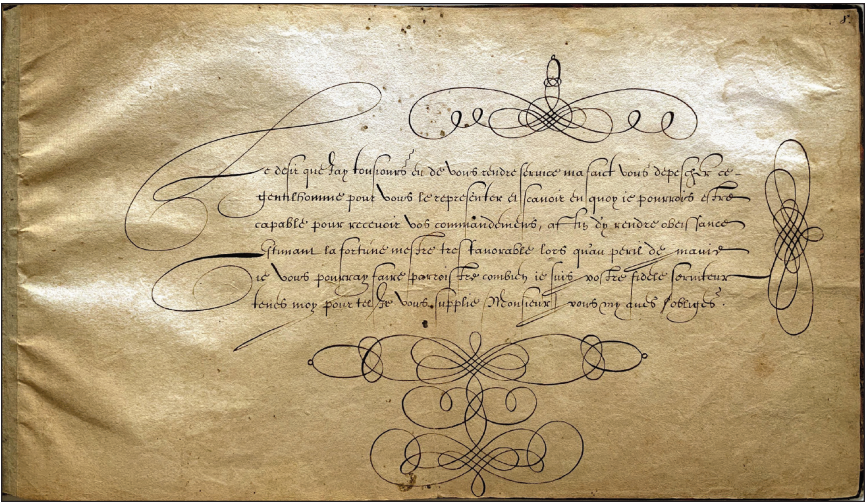 Le desir que J'ay tousiours eu de vous rendre seruice ma faict vous depescher ce
gentilhomme pour vous le representer et scauoir en quoy ie pourrois estre
capable pour receuoir vos commandemens, affin d'y rendre obeissance
Estimant la fortune mestre tres fauorable lors qu'au peril de ma vie
ie vous pourray faire paroistre combien ie suis vostre fidele seruiteur
tenes moy pour tel Je vous supplie Monsieur vous my aues obligé